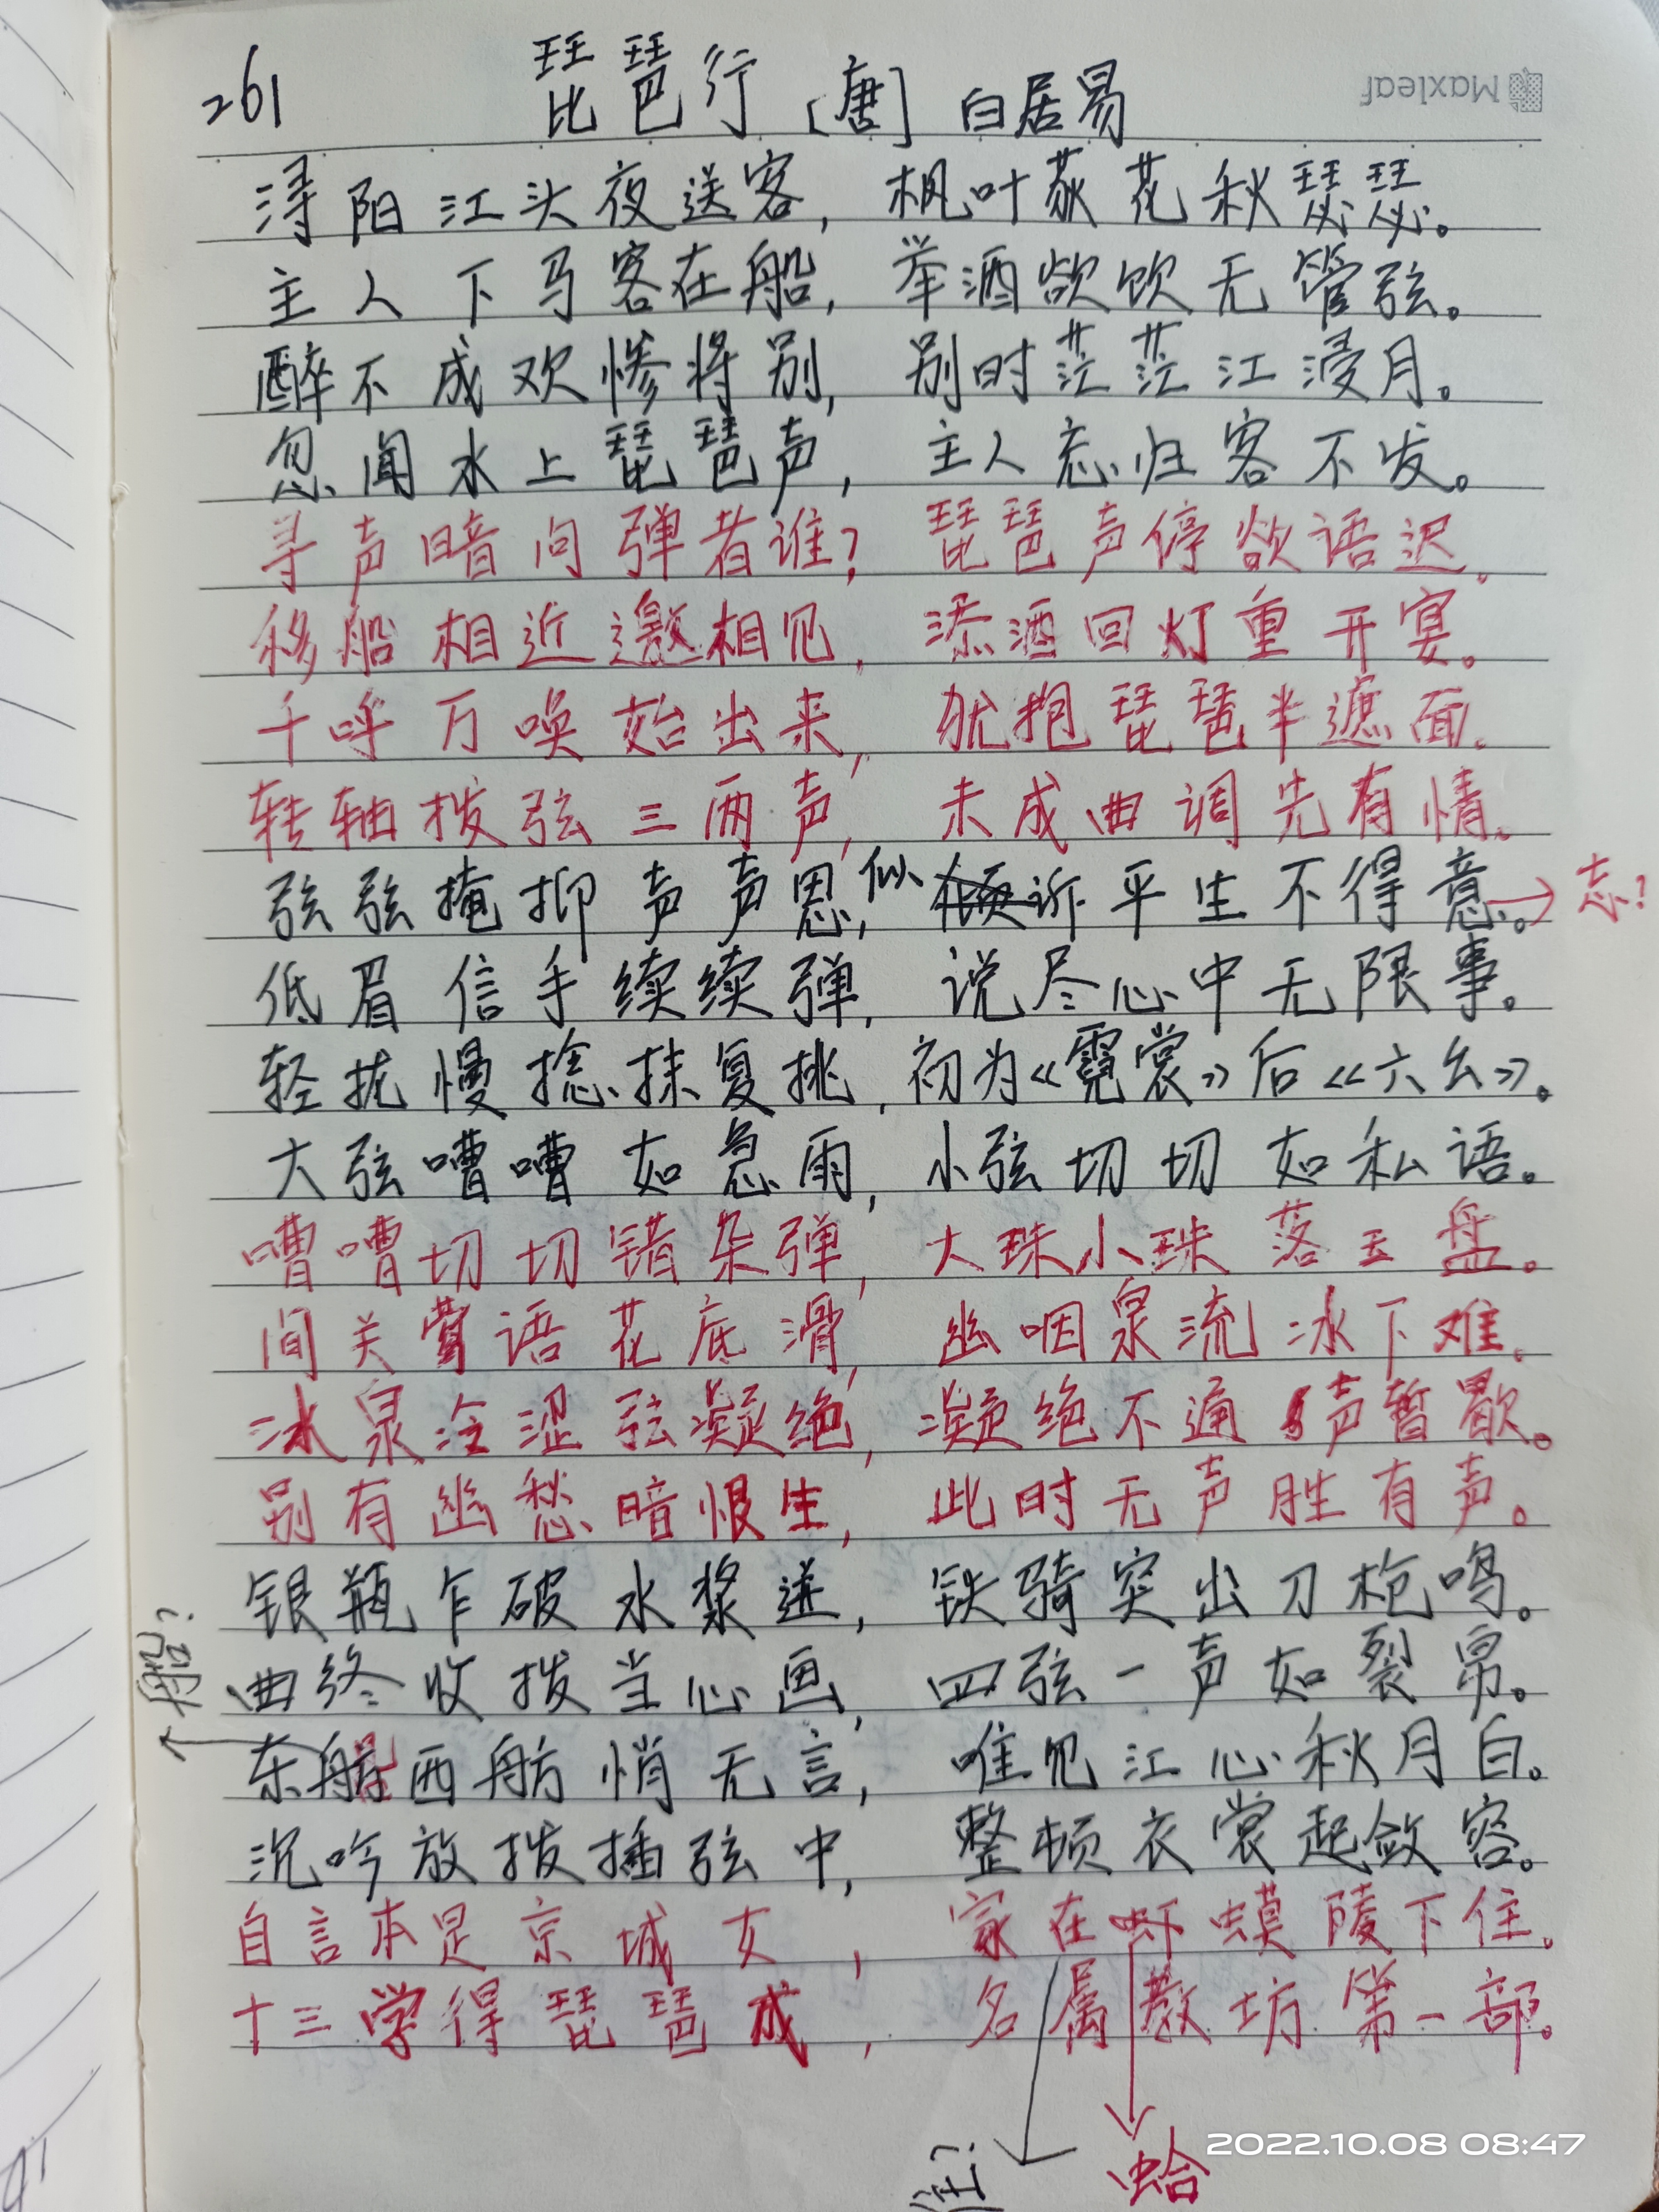 Maxleaf
261 琵琶行 [唐] 白居易
浔阳江头夜送客，枫叶荻花秋瑟瑟。
主人下马客在船，举酒欲饮无管弦。
醉不成欢惨将别，别时茫茫江浸月。
忽闻水上琵琶声，主人忘归客不发。
寻声暗问弹者谁？琵琶声停欲语迟。
移船相近邀相见，添酒回灯重开宴。
千呼万唤始出来，犹抱琵琶半遮面。
转轴拨弦三两声，未成曲调先有情。
弦弦掩抑声声思，似诉平生不得意。→志？
低眉信手续续弹，说尽心中无限事。
轻拢慢捻抹复挑，初为《霓裳》后《六幺》。
大弦嘈嘈如急雨，小弦切切如私语。
嘈嘈切切错杂弹，大珠小珠落玉盘。
间关莺语花底滑，幽咽泉流冰下难。
冰泉冷涩弦凝绝，凝绝不通声暂歇。
别有幽愁暗恨生，此时无声胜有声。
银瓶乍破水浆迸，铁骑突出刀枪鸣。
曲终收拨当心画，四弦一声如裂帛。
船？
东船西舫悄无言，唯见江心秋月白。
沉吟放拨插弦中，整顿衣裳起敛容。
自言本是京城女，家在虾蟆陵下住。
十三学得琵琶成，名属教坊第一部。
蛤
2022.10.08 08:47